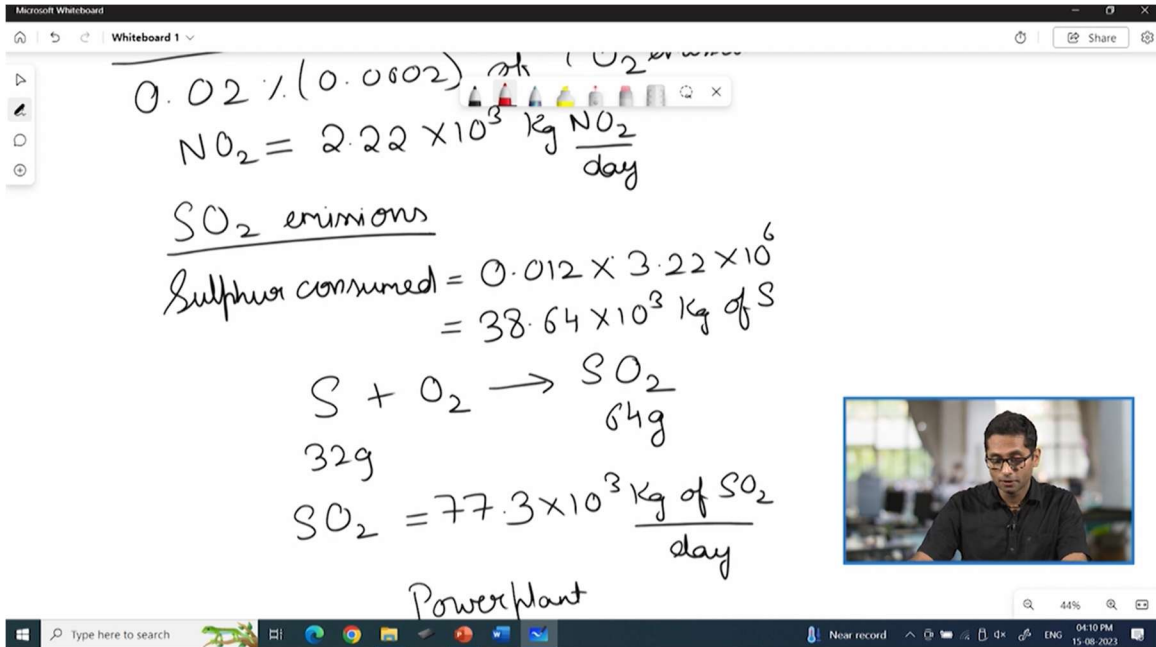 Microsoft Whiteboard
Whiteboard 1
Share
0.02 % (0.0002) of
NO₂ = 2.22 × 10³ Kg NO₂
day
SO₂ emissions
Sulphur consumed = 0.012 × 3.22 × 10⁶
= 38.64 × 10³ Kg of S
S + O₂ → SO₂
32g 64g
SO₂ = 77.3 × 10³ Kg of SO₂
day
Powerplant
44%
Type here to search
Near record
ENG
04:10 PM
15-08-2023